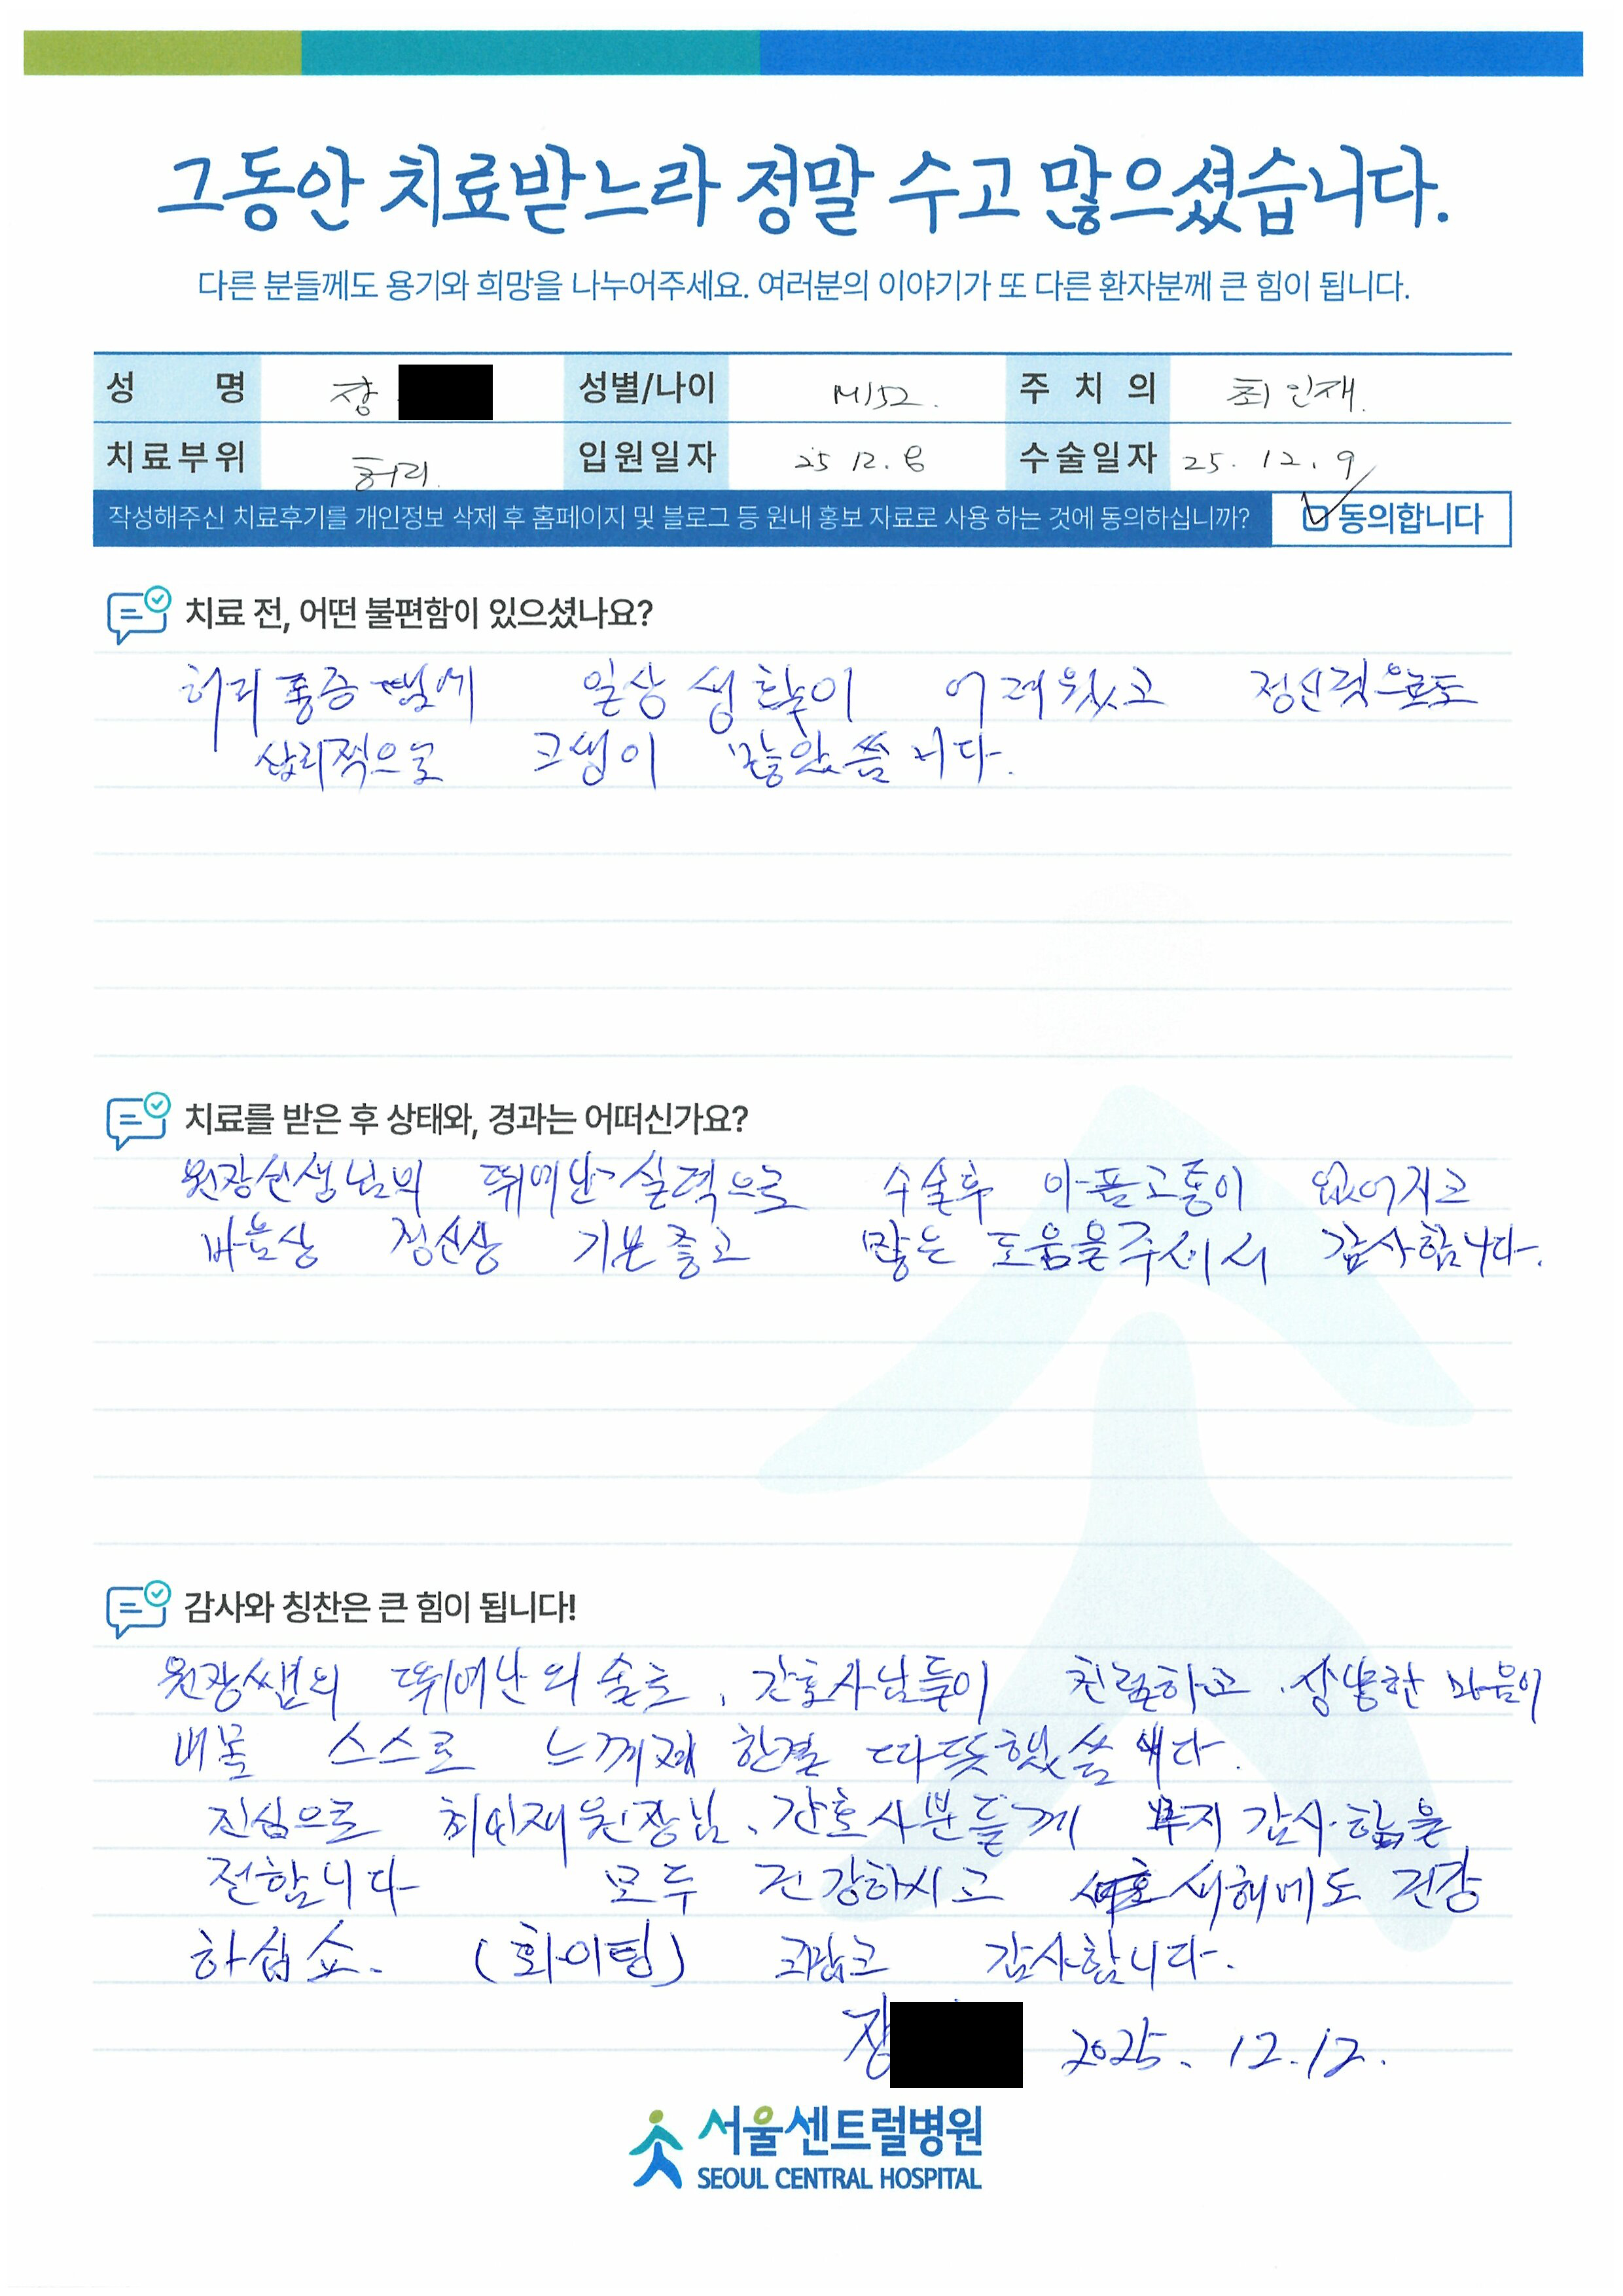 그동안 치료받느라 정말 수고 많으셨습니다.
다른 분들께도 용기와 희망을 나누어주세요. 여러분의 이야기가 또 다른 환자분께 큰 힘이 됩니다.
성 명 장 성별/나이 M/52. 주 치 의 최인재.
치료부위 허리. 입원일자 25 12. 8 수술일자 25. 12. 9
작성해주신 치료후기를 개인정보 삭제 후 홈페이지 및 블로그 등 원내 홍보 자료로 사용 하는 것에 동의하십니까? 동의합니다
치료 전, 어떤 불편함이 있으셨나요?
허리 통증 땜에 일상 생활이 어려웠고 정신적으로도
심리적으로 고생이 많았씀니다.
치료를 받은 후 상태와, 경과는 어떠신가요?
원장선생님의 뛰어난 실력으로 수술후 아픔고통이 없어지고
마음상 정신상 기분좋고 많은 도움을 주셔서 감사합니다.
감사와 칭찬은 큰 힘이 됩니다!
원장쌤의 뛰어난 의술로, 간호사님들이 친절하고, 상냥한 마음이
내몸 스스로 느껴져 한결 따뜻했씀니다.
진심으로 최인재 원장님, 간호사분들께 감사함을
전합니다 모두 건강하시고 새해에도 건강
하십쇼. (화이팅) 고맙고 감사합니다.
장 2025. 12.12.
서울센트럴병원
SEOUL CENTRAL HOSPITAL